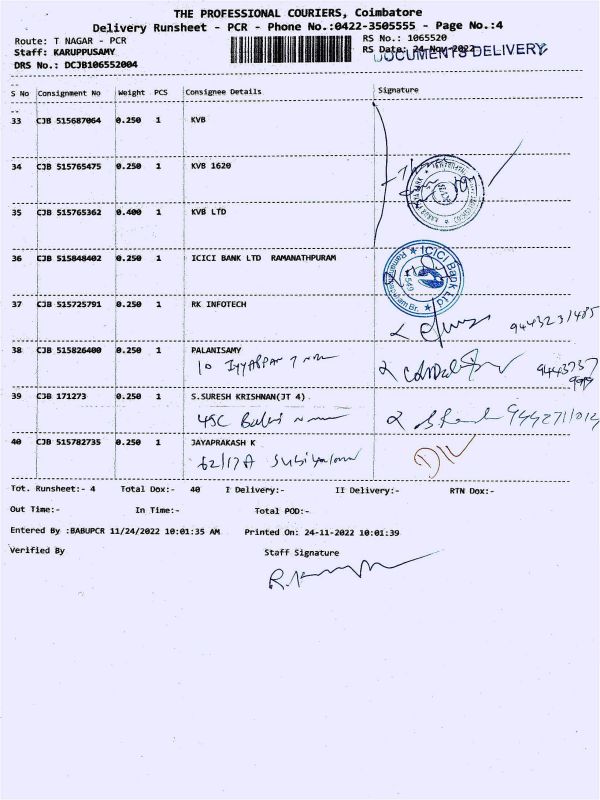 THE PROFESSIONAL COURIERS, Coimbatore
Delivery Runsheet - PCR - Phone No.:0422-3505555 - Page No.:4
Route: T NAGAR - PCR RS No.: 1065520
Staff: KARUPPUSAMY RS Date: 24-Nov-2022
DOCUMENTS DELIVERY
DRS No.: DCJB106552004
S No Consignment No Weight PCS Consignee Details Signature
33 CJB 515687064 0.250 1 KVB
34 CJB 515765475 0.250 1 KVB 1620
35 CJB 515765362 0.400 1 KVB LTD
36 CJB 515848402 0.250 1 ICICI BANK LTD RAMANATHPURAM
ICICI Bank Ltd
37 CJB 515725791 0.250 1 RK INFOTECH
9443231485
38 CJB 515826400 0.250 1 PALANISAMY
10
39 CJB 171273 0.250 1 S.SURESH KRISHNAN(JT 4)
45C
40 CJB 515782735 0.250 1 JAYAPRAKASH K
62/17A
Tot. Runsheet:- 4 Total Dox:- 40 I Delivery:- II Delivery:- RTN Dox:-
Out Time:- In Time:- Total POD:-
Entered By :BABUPCR 11/24/2022 10:01:35 AM Printed On: 24-11-2022 10:01:39
Verified By Staff Signature